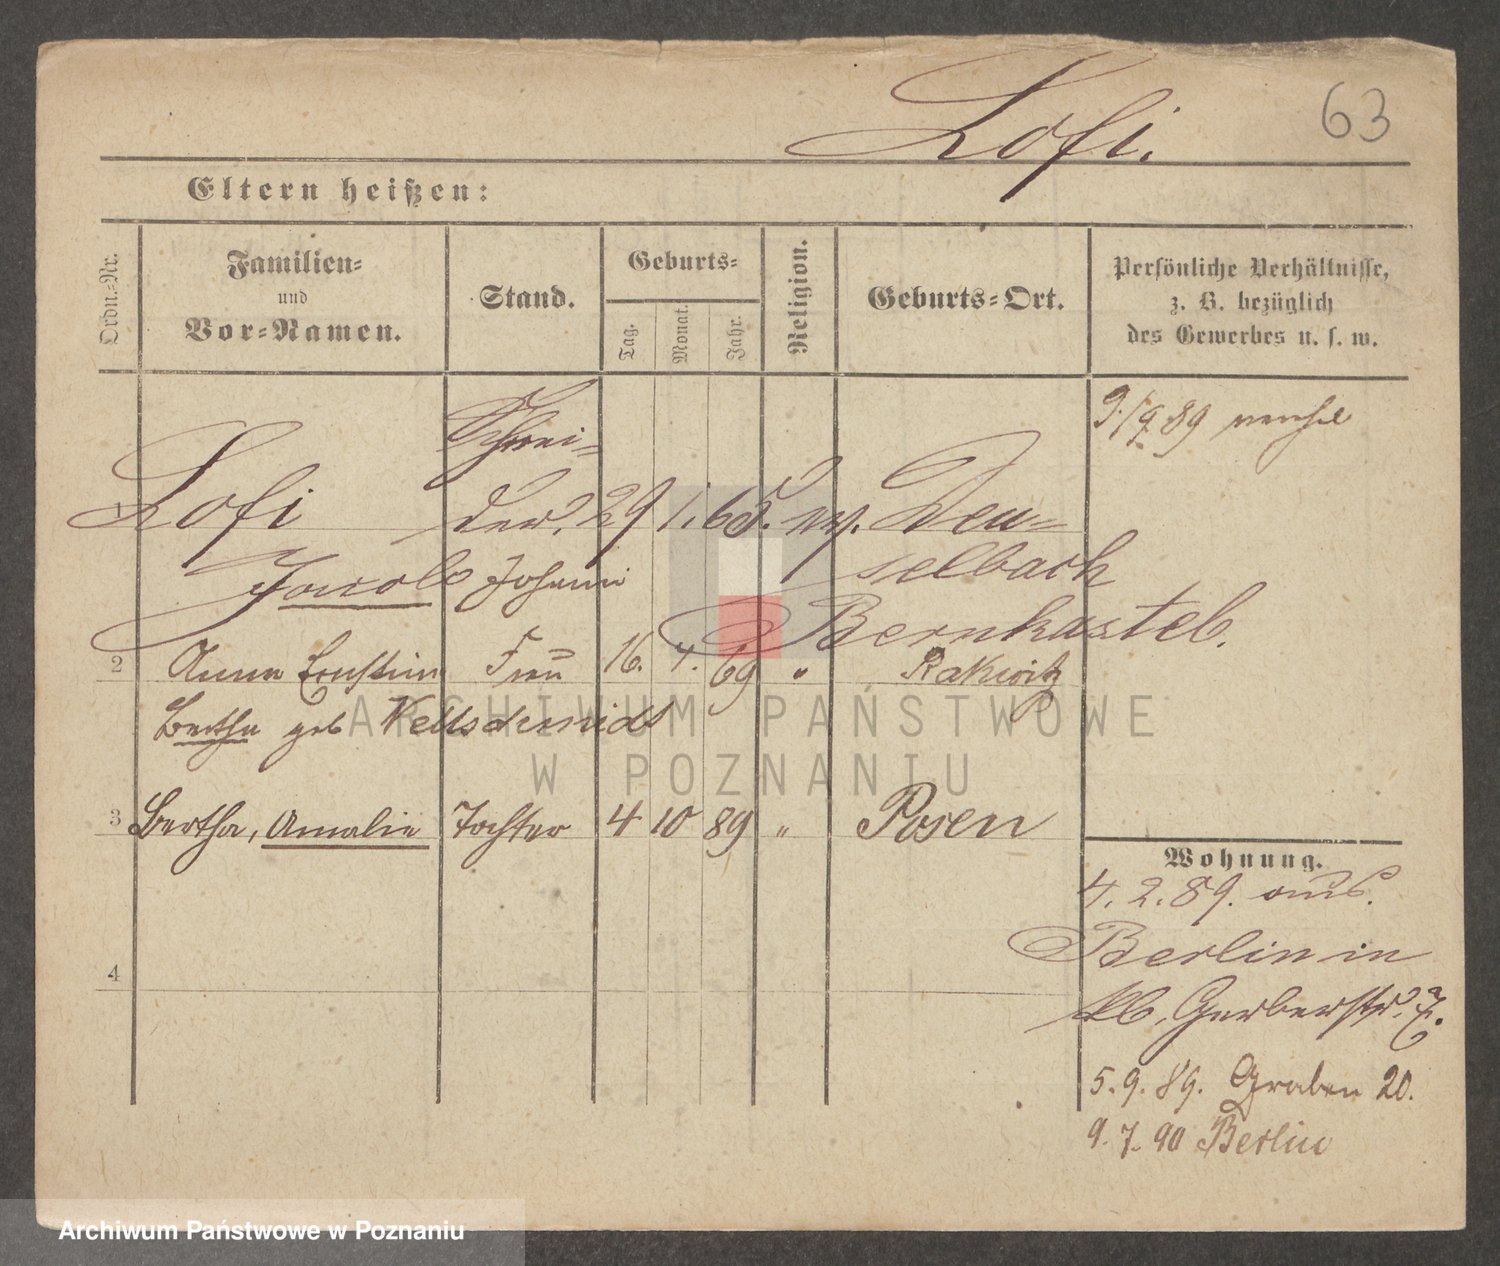 Lofi.
63
Eltern heißen:
Ordn.-Nr.
Familien-
und
Vor-Namen.
Stand.
Geburts-
Tag.
Monat.
Jahr.
Religion.
Geburts-Ort.
Persönliche Verhältnisse,
z. B. bezüglich
des Gewerbes u. s. w.
9/9 89
1 Lofi Schnei-
der. 29 1. 65. Deu-
selbach
Jacob Johann
Bernkastel.
2 Anna Ernstine Frau 16. 4. 69 " Rakwitz
Bertha geb
3 Bertha, Amalie Tochter 4 10 89 " Posen
4
Wohnung.
4. 2. 89. aus
Berlin in
Gerberstr. 7.
5. 9. 89. Graben 20.
9. 7. 90 Berlin
ARCHIWUM PAŃSTWOWE
W POZNANIU
Archiwum Państwowe w Poznaniu